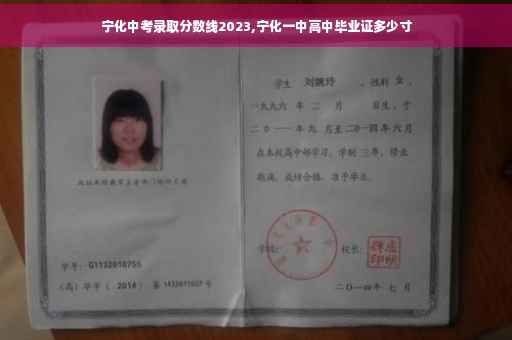 宁化中考录取分数线2023,宁化一中高中毕业证多少寸
学生 刘婉玲 ，性别 女 ，
一九九六 年 二 月 日生，于
二0一一年 九 月至二0一四年 六 月
在本校高中部学习，学制 三年，修业
期满，成绩合格，准予毕业。
学号： G1132010755
（高）毕字（ 2014 ）第 1432011027 号
学校：
校长：
二〇一四年 七 月